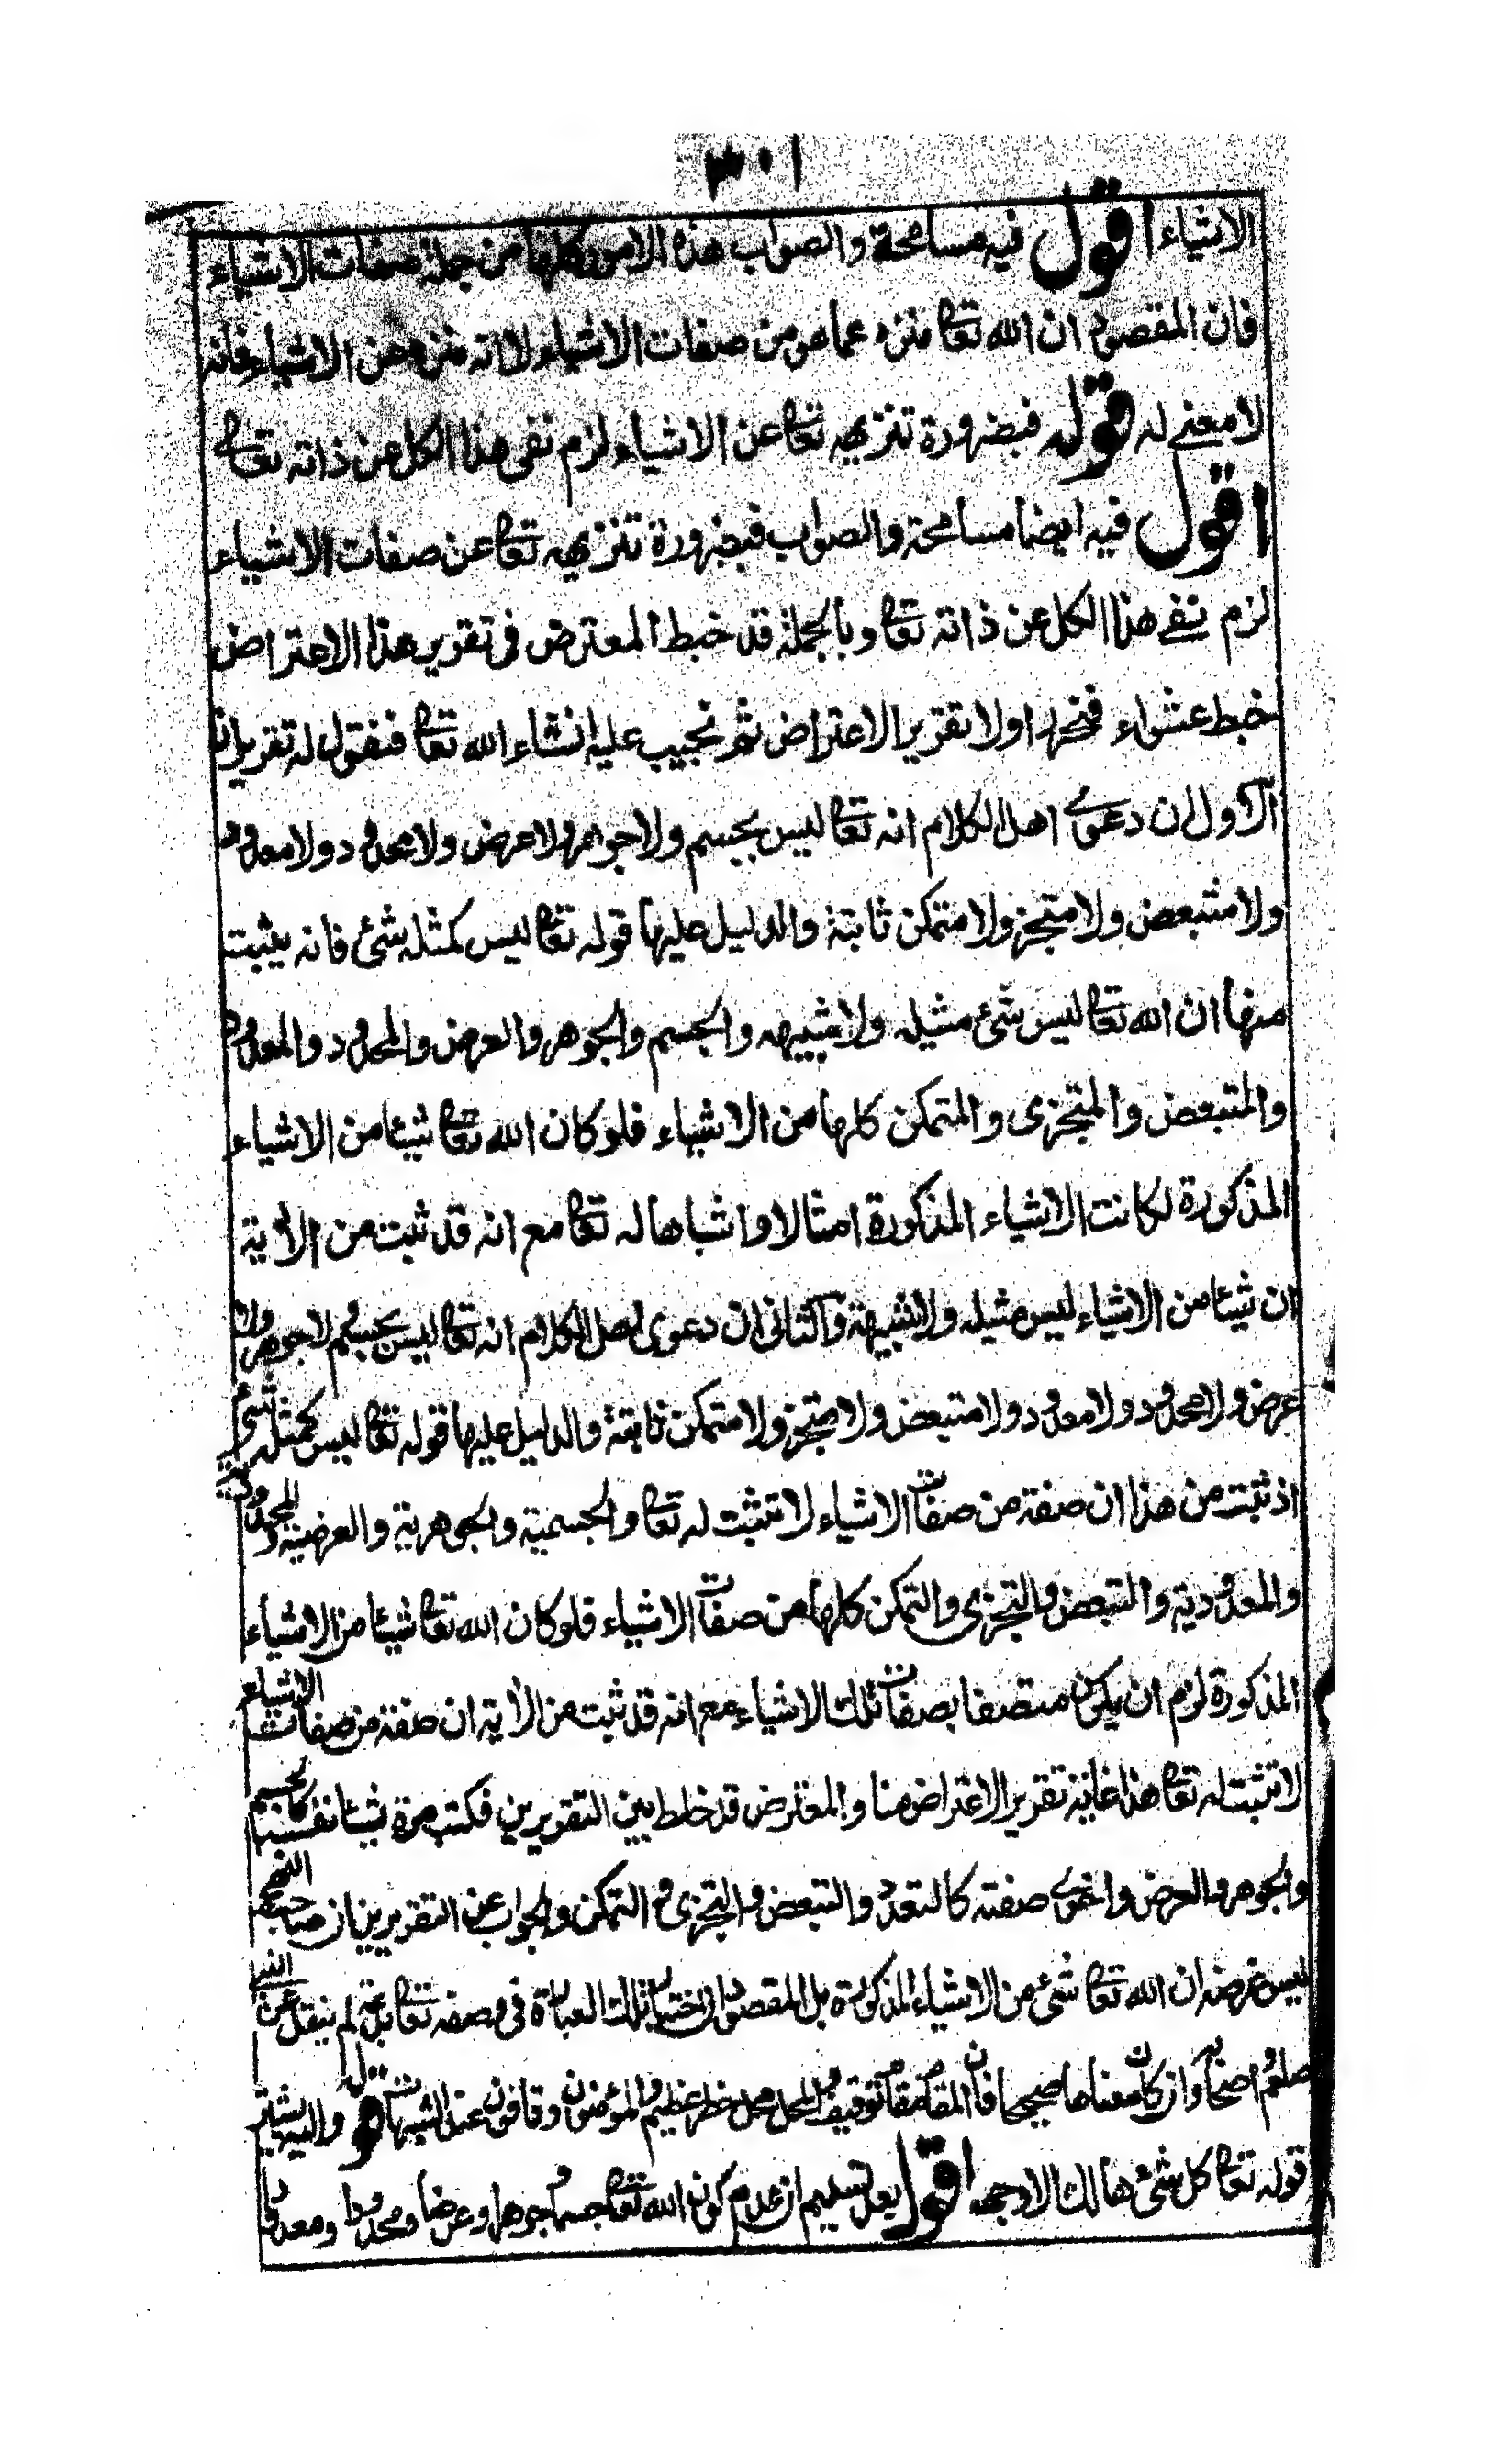 ٣٠١
الاشياء اقول فيه مسامحة والصواب هذه الامور كلها من جملة صفات الاشياء
فان المقصود ان الله تعا منزه عما هو من صفات الاشياء لا انه منزه عن الاشياء فانه
لا معنے له قوله فبضرورة تنزيهه تعا عن الاشياء لزم نفى هذا الكل عن ذاته تعا
اقول فيه ايضا مسامحة والصواب فبضرورة تنزيهه تعا عن صفات الاشياء
لزم نفے هذا الكل عن ذاته تعا وبالجملة قد خبط المعترض فى تقرير هذا الاعتراض
خبط عشواء فنحرر اولا تقرير الاعتراض ثم نجيب عليه انشاء الله تعا فنقول له تقريران
الاول ان دعوے اهل الكلام انه تعا ليس بجسم ولا جوهر ولا عرض ولا محدود ولا معدود
ولا متبعض ولا متجز ولا متمكن ثابتة والدليل عليها قوله تعا ليس كمثله شئ فانه يثبت
منها ان الله تعا ليس شئ مثيله ولا شبيهه والجسم والجوهر والعرض والمحدود والمعدود
والمتبعض والمتجزى والمتمكن كلها من الاشياء فلو كان الله تعا شيئا من الاشياء
المذكورة لكانت الاشياء المذكورة امثالا واشباها له تعا مع انه قد ثبت من الاٰية
ان شيئا من الاشياء ليس مثيله ولا شبيهه والثانى ان دعوى اهل الكلام انه تعا ليس بجسم ولا جوهر ولا
عرض ولا محدود ولا معدود ولا متبعض ولا متجز ولا متمكن ثابتة والدليل عليها قوله تعا ليس كمثله شئ
اذ ثبت من هذا ان صفة من صفات الاشياء لا تثبت له تعا والجسمية والجوهرية والعرضية والمحدودية
والمعدودية والتبعض والتجزى والتمكن كلها من صفات الاشياء فلو كان الله تعا شيئا من الاشياء
المذكورة لزم ان يكون متصفا بصفات تلك الاشياء مع انه قد ثبت من الاٰية ان صفة من صفات الاشياء
لا تثبت له تعا هذا غاية تقرير الاعتراض منا والمعترض قد خلط بين التقريرين فكتب مرة شيئا نفسها كالجسم
والجوهر والعرض واخرى صفته كالتعدد والتبعض والتجزى والتمكن والجواب عن التقريرين ان صاحب النهج
ليس غرضه ان الله تعا شئ من الاشياء المذكورة بل المقصود ان اختيار تلك العبارة فى وصفه تعا بدعة لم ينقل عن النبى
صلعم واصحابه وان كان معناها صحيحا فان المقام مقام توقيف والمحل محل خطر عظيم والمؤمنون وقافون عند الشبهات قوله واليه يشير
قوله تعا كل شئ هالك الا وجهه اقول بعد تسليم ان عدم كون الله تعا جسما وجوهرا وعرضا ومحدودا ومعدودا